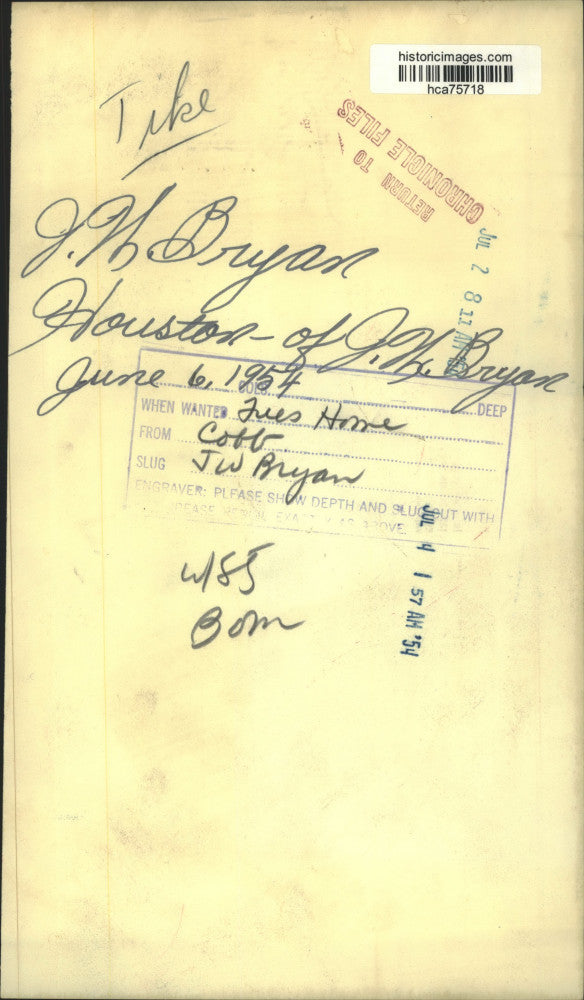 historicimages.com
hca75718
Tike
RETURN TO
CHRONICLE FILES
JUL 2 8 11 AM
J. W. Bryan
Houston - of J. W. Bryan
June 6, 1954
COLS. DEEP
WHEN WANTED Tues Home
FROM Cobb
SLUG JW Bryan
ENGRAVER: PLEASE SHOW DEPTH AND SLUG OUT WITH
ABOVE
JUL 4 1 57 AM '54
W/85
Bom